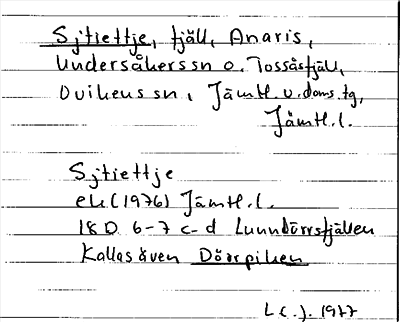 Sjtiettje, fjäll, Anaris,
Undersåkers sn o. Tossåsfjäll,
Ovikens sn, Jämtl. v. doms. tg,
Jämtl. l.
Sjtiettje
ek (1976) Jämtl. l.
18 D 6-7 c-d Lunndörrsfjällen
Kallas även Dörrpiken
1977